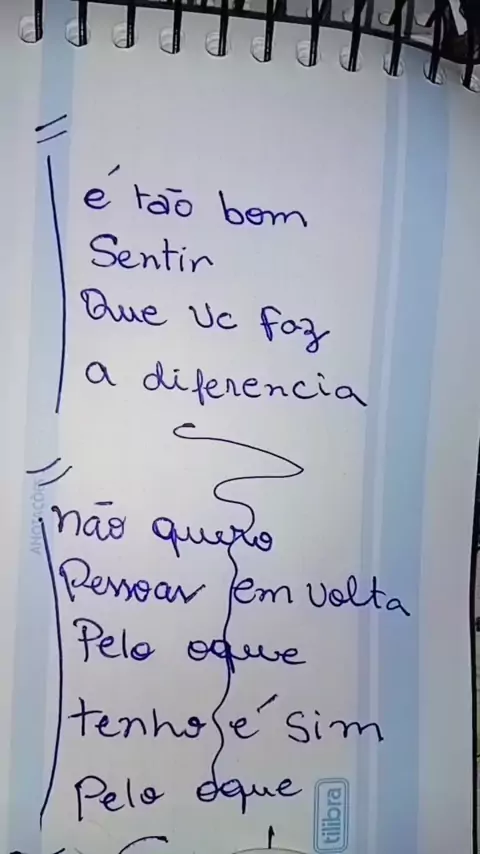 é tão bom
Sentir
Que vc faz
a diferencia
não quero
Pessoas em volta
Pelo oque
tenho é sim
Pelo oque
tilibra